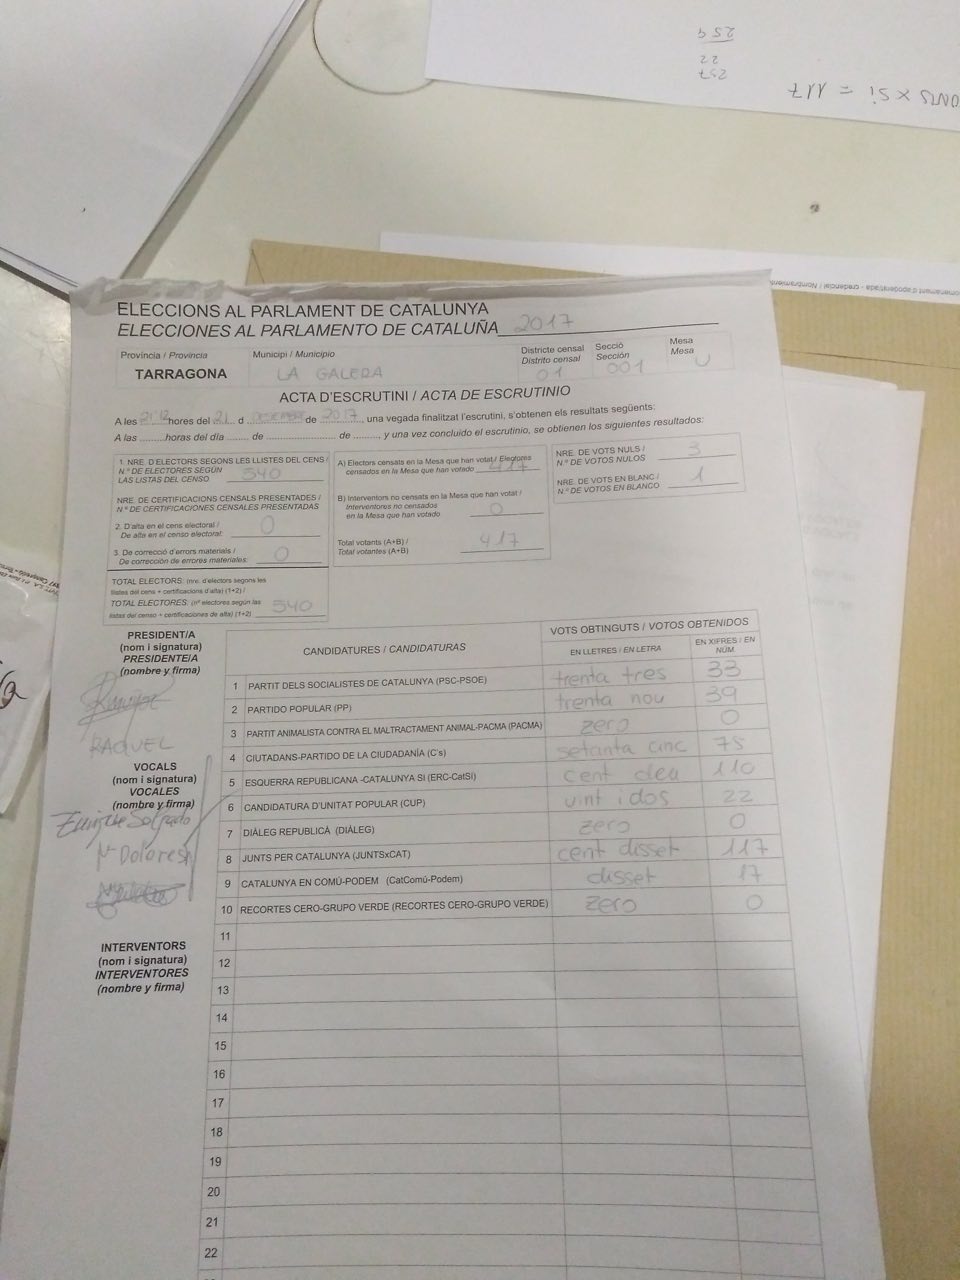 259
22
257
JUNTS X SI = 117
ELECCIONS AL PARLAMENT DE CATALUNYA
ELECCIONES AL PARLAMENTO DE CATALUÑA 2017
Província / Provincia
TARRAGONA
Municipi / Municipio
LA GALERA
Districte censal
Distrito censal
01
Secció
Sección
001
Mesa
Mesa
U
ACTA D'ESCRUTINI / ACTA DE ESCRUTINIO
A les 21:12 hores del 21 d DESEMBRE de 2017, una vegada finalitzat l'escrutini, s'obtenen els resultats següents:
A las ......... horas del día ....... de .......................... de ........, y una vez concluido el escrutinio, se obtienen los siguientes resultados:
1. NRE. D'ELECTORS SEGONS LES LLISTES DEL CENS /
N.º DE ELECTORES SEGÚN
LAS LISTAS DEL CENSO 540
NRE. DE CERTIFICACIONS CENSALS PRESENTADES /
N.º DE CERTIFICACIONES CENSALES PRESENTADAS
2. D'alta en el cens electoral /
De alta en el censo electoral: 0
3. De correcció d'errors materials /
De corrección de errores materiales: 0
TOTAL ELECTORS: (nre. d'electors segons les
llistes del cens + certificacions d'alta) (1+2) /
TOTAL ELECTORES: (nº electores según las
listas del censo + certificaciones de alta) (1+2) 540
A) Electors censats en la Mesa que han votat / Electores
censados en la Mesa que han votado 417
B) Interventors no censats en la Mesa que han votat /
Interventores no censados
en la Mesa que han votado 0
Total votants (A+B) /
Total votantes (A+B) 417
NRE. DE VOTS NULS /
N.º DE VOTOS NULOS 3
NRE. DE VOTS EN BLANC /
N.º DE VOTOS EN BLANCO 1
PRESIDENT/A
(nom i signatura)
PRESIDENTE/A
(nombre y firma)
RAQUEL
VOCALS
(nom i signatura)
VOCALES
(nombre y firma)
Enrique Salgado
Mª Dolores
INTERVENTORS
(nom i signatura)
INTERVENTORES
(nombre y firma)
CANDIDATURES / CANDIDATURAS
VOTS OBTINGUTS / VOTOS OBTENIDOS
EN LLETRES / EN LETRA
EN XIFRES / EN NÚM
1 PARTIT DELS SOCIALISTES DE CATALUNYA (PSC-PSOE) trenta tres 33
2 PARTIDO POPULAR (PP) trenta nou 39
3 PARTIT ANIMALISTA CONTRA EL MALTRACTAMENT ANIMAL-PACMA (PACMA) zero 0
4 CIUTADANS-PARTIDO DE LA CIUDADANÍA (C's) setanta cinc 75
5 ESQUERRA REPUBLICANA -CATALUNYA SÍ (ERC-CatSí) cent deu 110
6 CANDIDATURA D'UNITAT POPULAR (CUP) vint i dos 22
7 DIÀLEG REPUBLICÀ (DIÀLEG) zero 0
8 JUNTS PER CATALUNYA (JUNTSxCAT) cent disset 117
9 CATALUNYA EN COMÚ-PODEM (CatComú-Podem) disset 17
10 RECORTES CERO-GRUPO VERDE (RECORTES CERO-GRUPO VERDE) zero 0
11
12
13
14
15
16
17
18
19
20
21
22